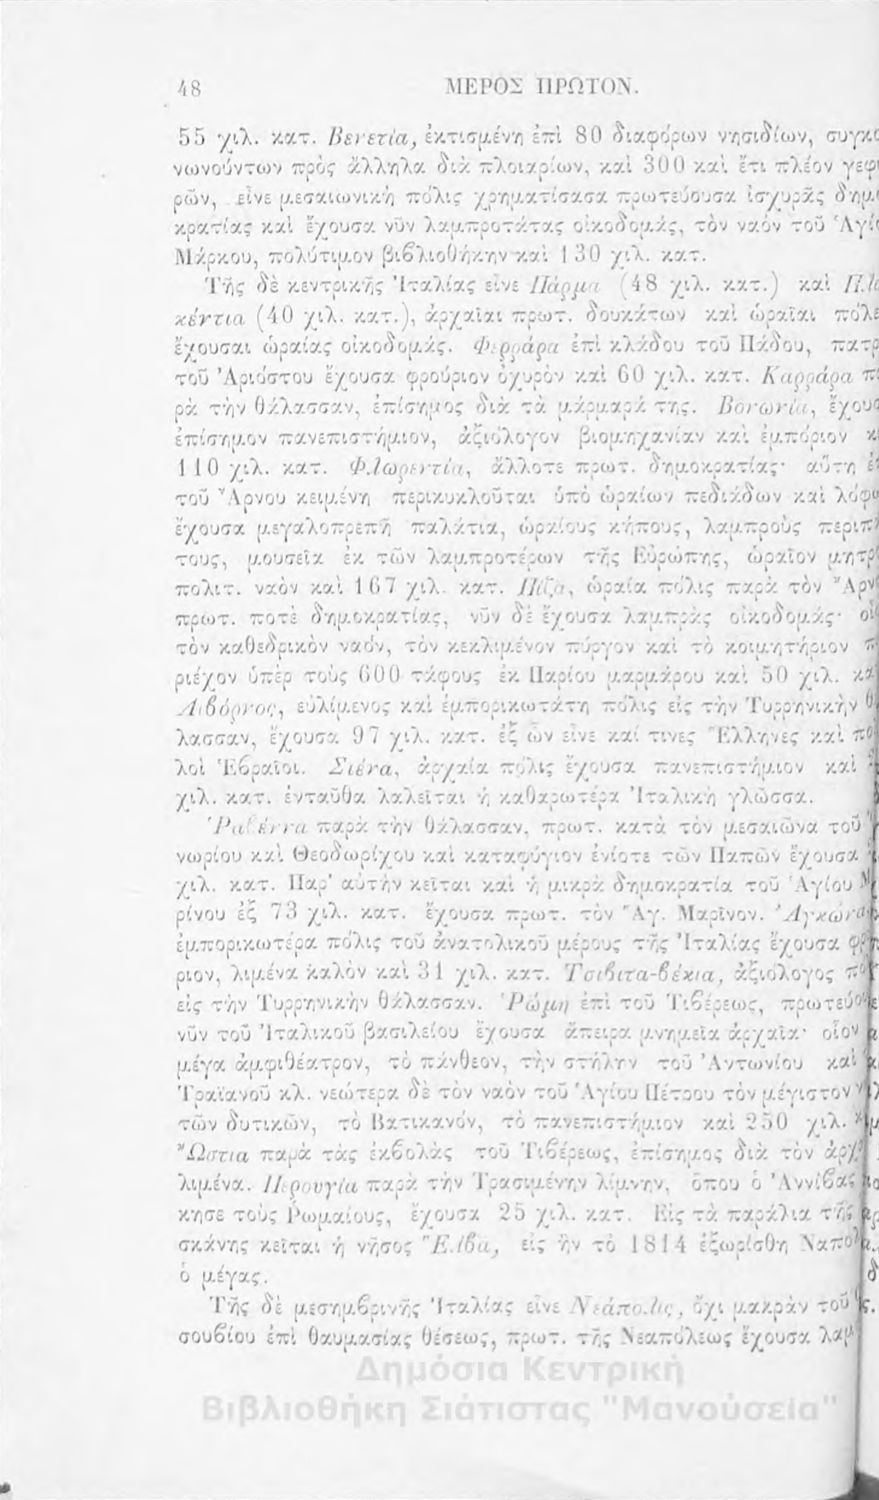 48 ΜΕΡΟΣ ΠΡΩΤΟΝ.
55 χιλ. κατ. Βενετία, ἐκτισμένη ἐπὶ 80 διαφόρων νησιδίων, συγκο
νωνούντων πρὸς ἄλληλα διὰ πλοιαρίων, καὶ 300 καὶ ἔτι πλέον γεφυ
ρῶν, εἶνε μεσαιωνικὴ πόλις χρηματίσασα πρωτεύουσα ἰσχυρᾶς δημο
κρατίας καὶ ἔχουσα νῦν λαμπροτάτας οἰκοδομάς, τὸν ναὸν τοῦ Ἁγίο
Μάρκου, πολύτιμον βιβλιοθήκην καὶ 130 χιλ. κατ.
Τῆς δὲ κεντρικῆς Ἰταλίας εἶνε Πάρμα (48 χιλ. κατ.) καὶ Πλ
κέντια (40 χιλ. κατ.), ἀρχαῖαι πρωτ. δουκάτων καὶ ὡραῖαι πόλε
ἔχουσαι ὡραίας οἰκοδομάς. Φερράρα ἐπὶ κλάδου τοῦ Πάδου, πατρ
τοῦ Ἀριόστου ἔχουσα φρούριον ὀχυρὸν καὶ 60 χιλ. κατ. Καρράρα π
ρὰ τὴν θάλασσαν, ἐπίσημος διὰ τὰ μάρμαρά της. Βονωνία, ἔχουσ
ἐπίσημον πανεπιστήμιον, ἀξιόλογον βιομηχανίαν καὶ ἐμπόριον κ
110 χιλ. κατ. Φλωρεντία, ἄλλοτε πρωτ. δημοκρατίας· αὕτη ἐ
τοῦ Ἄρνου κειμένη περικυκλοῦται ὑπὸ ὡραίων πεδιάδων καὶ λόφω
ἔχουσα μεγαλοπρεπῆ παλάτια, ὡραίους κήπους, λαμπροὺς περιπ
τους, μουσεῖα ἐκ τῶν λαμπροτέρων τῆς Εὐρώπης, ὡραῖον μητρ
πολιτ. ναὸν καὶ 167 χιλ. κατ. Πίζα, ὡραία πόλις παρὰ τὸν Ἄρν
πρωτ. ποτὲ δημοκρατίας, νῦν δὲ ἔχουσα λαμπρὰς οἰκοδομάς· οἷ
τὸν καθεδρικὸν ναόν, τὸν κεκλιμένον πύργον καὶ τὸ κοιμητήριον π
ριέχον ὑπὲρ τοὺς 600 τάφους ἐκ Παρίου μαρμάρου καὶ 50 χιλ. κα
Λιβόρνος, εὐλίμενος καὶ ἐμπορικωτάτη πόλις εἰς τὴν Τυρρηνικὴν θ
λασσαν, ἔχουσα 97 χιλ. κατ. ἐξ ὧν εἶνε καί τινες Ἕλληνες καὶ πο
λοὶ Ἑβραῖοι. Σιένα, ἀρχαία πόλις ἔχουσα πανεπιστήμιον καὶ
χιλ. κατ. ἐνταῦθα λαλεῖται ἡ καθαρωτέρα Ἰταλικὴ γλῶσσα.
Ῥαβέννα παρὰ τὴν θάλασσαν, πρωτ. κατὰ τὸν μεσαιῶνα τοῦ
νωρίου καὶ Θεοδωρίχου καὶ καταφύγιον ἐνίοτε τῶν Παπῶν ἔχουσα
χιλ. κατ. Παρ' αὐτὴν κεῖται καὶ ἡ μικρὰ δημοκρατία τοῦ Ἁγίου Μ
ρίνου ἐξ 73 χιλ. κατ. ἔχουσα πρωτ. τὸν Ἅγ. Μαρῖνον. Ἀγκώνα
ἐμπορικωτέρα πόλις τοῦ ἀνατολικοῦ μέρους τῆς Ἰταλίας ἔχουσα φρ
ριον, λιμένα καλὸν καὶ 31 χιλ. κατ. Τσιβιτα-βέκια, ἀξιόλογος πο
εἰς τὴν Τυρρηνικὴν θάλασσαν. Ῥώμη ἐπὶ τοῦ Τιβέρεως, πρωτεύο
νῦν τοῦ Ἰταλικοῦ βασιλείου ἔχουσα ἄπειρα μνημεῖα ἀρχαῖα· οἷον
μέγα ἀμφιθέατρον, τὸ πάνθεον, τὴν στήλην τοῦ Ἀντωνίου καὶ
Τραϊανοῦ κλ. νεώτερα δὲ τὸν ναὸν τοῦ Ἁγίου Πέτρου τὸν μέγιστον
τῶν δυτικῶν, τὸ Βατικανόν, τὸ πανεπιστήμιον καὶ 250 χιλ.
Ὤστια παρὰ τὰς ἐκβολὰς τοῦ Τιβέρεως, ἐπίσημος διὰ τὸν ἀρχ
λιμένα. Περουγία παρὰ τὴν Τρασιμένην λίμνην, ὅπου ὁ Ἀννίβας
κησε τοὺς Ῥωμαίους, ἔχουσα 25 χιλ. κατ. Εἰς τὰ παράλια τῆς
σκάνης κεῖται ἡ νῆσος Ἔλβα, εἰς ἣν τὸ 1814 ἐξωρίσθη Ναπο
ὁ μέγας.
Τῆς δὲ μεσημβρινῆς Ἰταλίας εἶνε Νεάπολις, ὄχι μακρὰν τοῦ
σουβίου ἐπὶ θαυμασίας θέσεως, πρωτ. τῆς Νεαπόλεως ἔχουσα λαμ
Δημόσια Κεντρική
Βιβλιοθήκη Σιάτιστας "Μανούσεια"